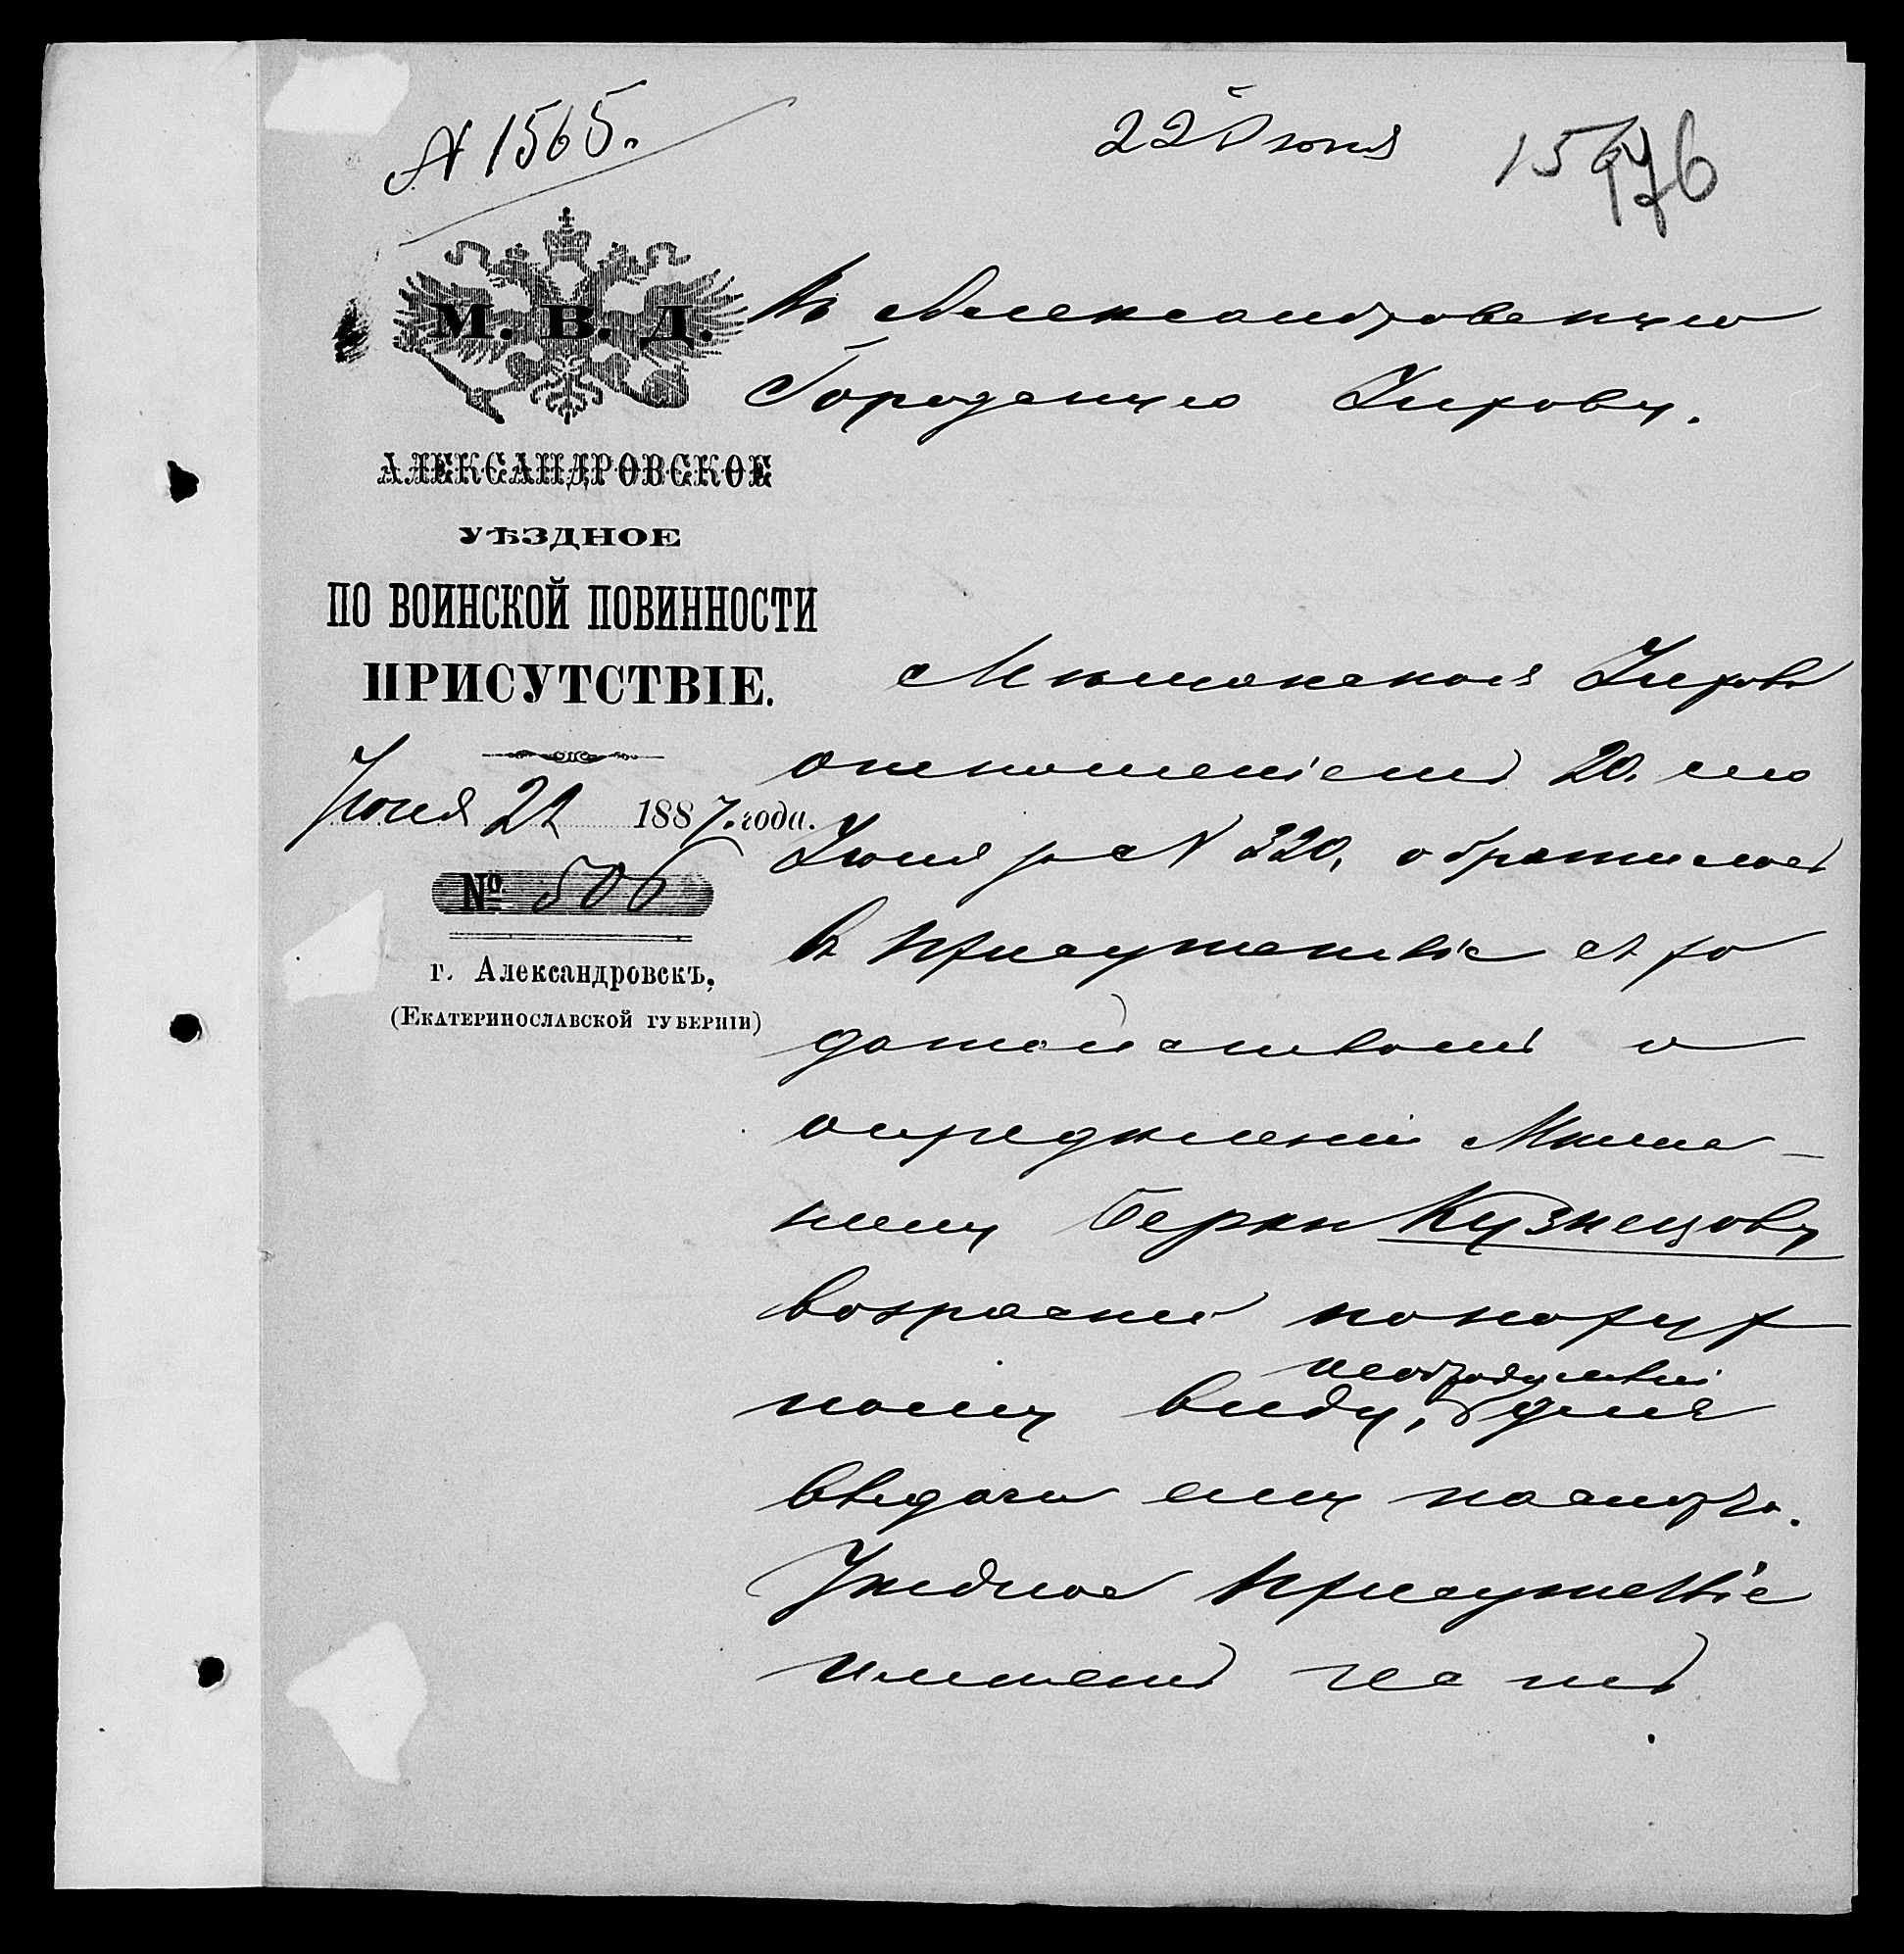 № 1565.
22 Июня
176
М. В. Д.
АЛЕКСАНДРОВСКОЕ
УѢЗДНОЕ
ПО ВОИНСКОЙ ПОВИННОСТИ
ПРИСУТСТВІЕ.
Іюня 21 1887. года.
№ 506
г. Александровскъ,
(Екатеринославской губерніи)
Въ Александровскую
Городскую Управу.
Мѣщанская Управа
отношеніемъ 20. сего
Іюня за № 320, обратилась
въ Присутствіе съ хо
датайствомъ о
опредѣленіи Мѣща-
нину Берки Кузнецову
возраста по наруж
ному виду, необходимый для
выдачи ему паспорта.
Уѣздное Присутствіе
имѣетъ честь